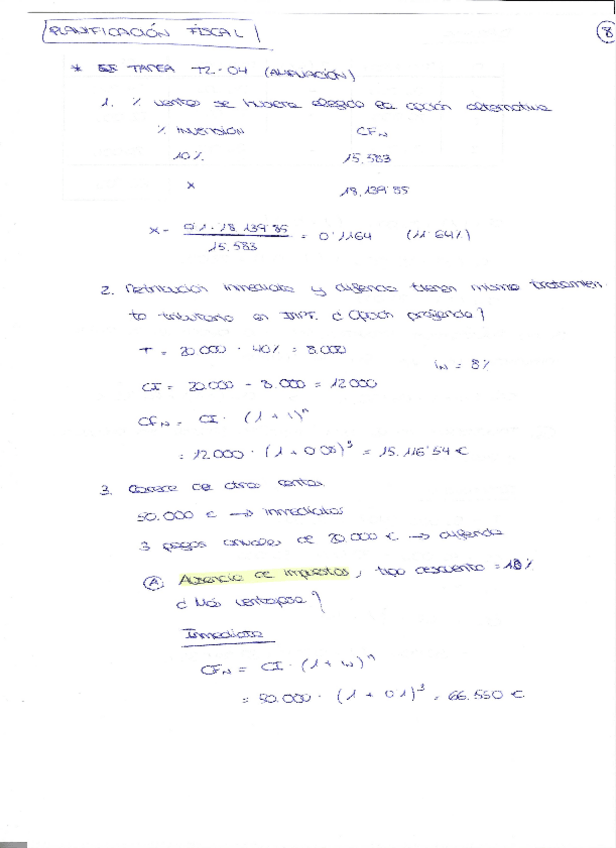 PLANIFICACIÓN FISCAL
8
* TAREA T2-04 (AMPLIACIÓN)
1. % se hubiera elegido opción alternativa
% inversión CFN
10% 15.583
x 18.139'85
x = 0'1 · 18.139'85 / 15.583 = 0'1164 (11'64%)
2. Retribución inmediata y diferida tienen mismo tratamien
to tributario en IRPF. ¿ Opción preferida?
T = 20.000 · 40% = 8.000
iN = 8%
CI = 20.000 - 8.000 = 12.000
CFN = CI · (1 + i)^n
= 12.000 · (1 + 0'08)^3 = 15.116'54 €
3. Carece de otras rentas
50.000 € → inmediatos
3 pagos anuales de 20.000 € → diferida
A Ausencia de impuestos, tipo descuento = 10%
¿ Más ventajosa?
Inmediata
CFN = CI · (1 + iN)^n
= 50.000 · (1 + 0'1)^3 = 66.550 €